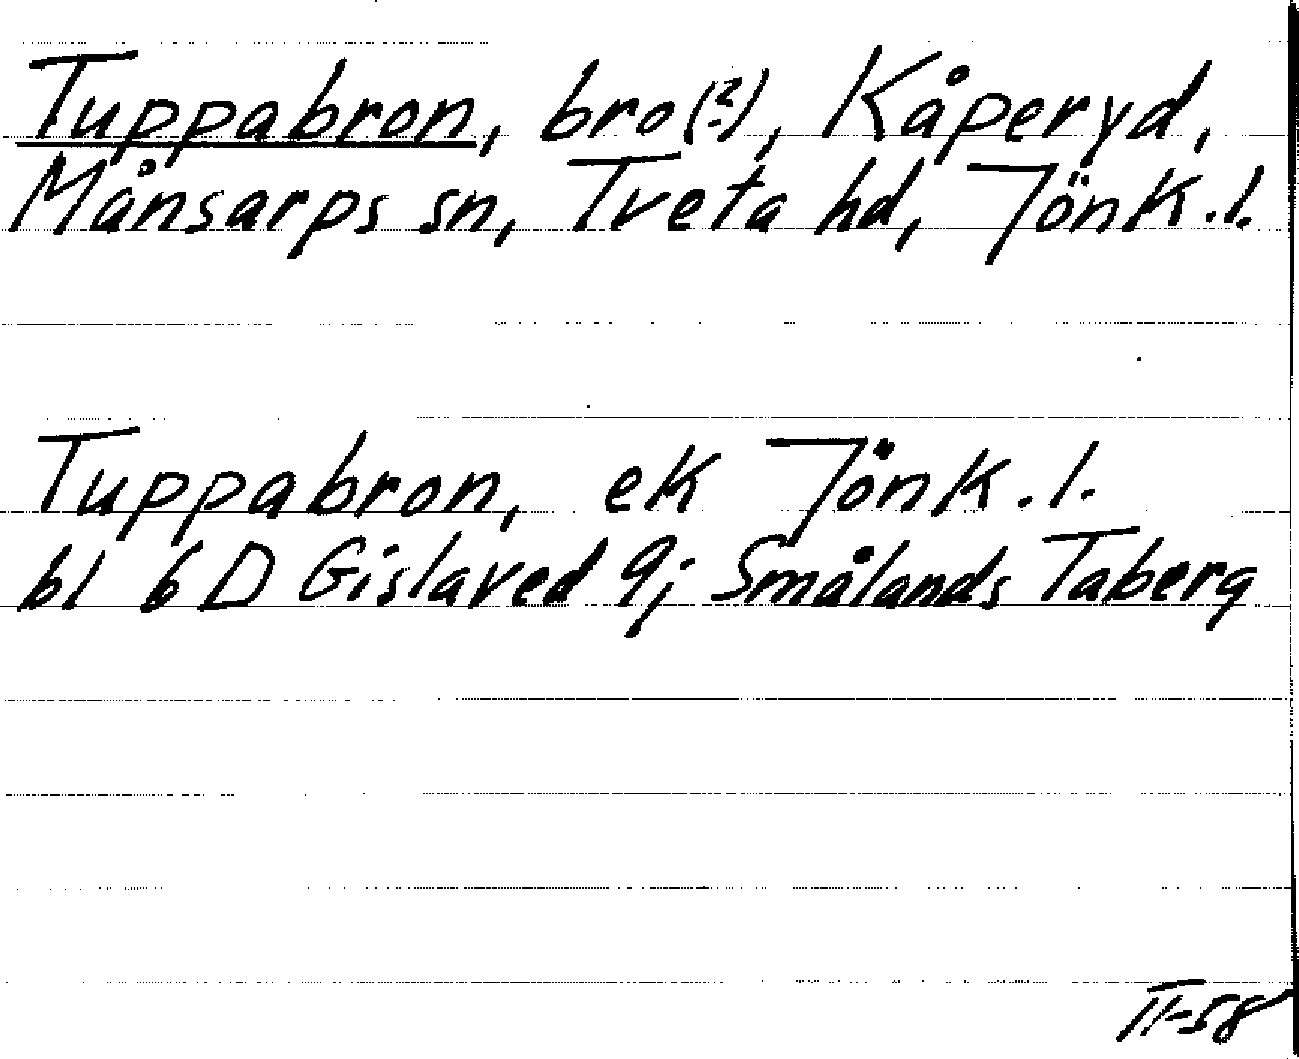 Tuppabron, bro(?), Kåperyd,
Månsarps sn, Tveta hd, Jönk.l.
Tuppabron, ek Jönk.l.
bl 6D Gislaved 9j Smålands Taberg
II-58